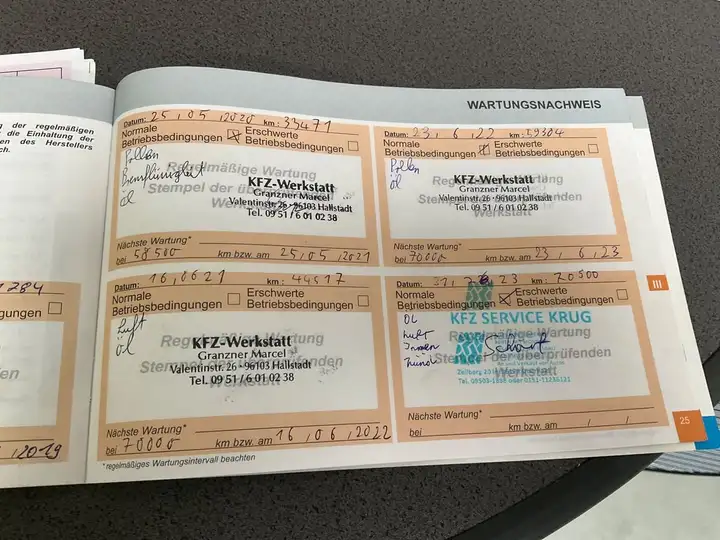 WARTUNGSNACHWEIS
g der regelmäßigen
die Einhaltung der
en des Herstellers
ch.
Datum: 25, 05, 2020 km: 33471
Normale
Betriebsbedingungen
Erschwerte
Betriebsbedingungen
Pollen
Bremsflüssigkeit
öl
Regelmäßige Wartung
Stempel der
KFZ-Werkstatt
Granzner Marcel
Valentinstr. 26 · 96103 Hallstadt
Tel. 09 51 / 6 01 02 38
Nächste Wartung*
bei 58 500 km bzw. am 25, 05, 2021
Datum: 23, 6, 22 km: 59304
Normale
Betriebsbedingungen
Erschwerte
Betriebsbedingungen
Pollen
öl
Regelmäßige Wartung
KFZ-Werkstatt
Granzner Marcel
Valentinstr. 26 · 96103 Hallstadt
Tel. 09 51 / 6 01 02 38
Werkstatt
Nächste Wartung*
bei 70000 km bzw. am 23, 6, 23
1284
ngen
en
, 2019
Datum: 16, 0621 km: 44417
Normale
Betriebsbedingungen
Erschwerte
Betriebsbedingungen
Luft
öl
Regelmäßige Wartung
Stempel der überprüfenden
KFZ-Werkstatt
Granzner Marcel
Valentinstr. 26 · 96103 Hallstadt
Tel. 09 51 / 6 01 02 38
Nächste Wartung*
bei 70000 km bzw. am 16, 06, 2022
Datum: 23 km: 70500
Normale
Betriebsbedingungen
Erschwerte
Betriebsbedingungen
ÖL
Luft
Innen
Zünd
KFZ SERVICE KRUG
Regelmäßige Wartung
Stempel der überprüfenden
Werkstatt
Nächste Wartung*
bei km bzw. am / /
* regelmäßiges Wartungsintervall beachten
III
25